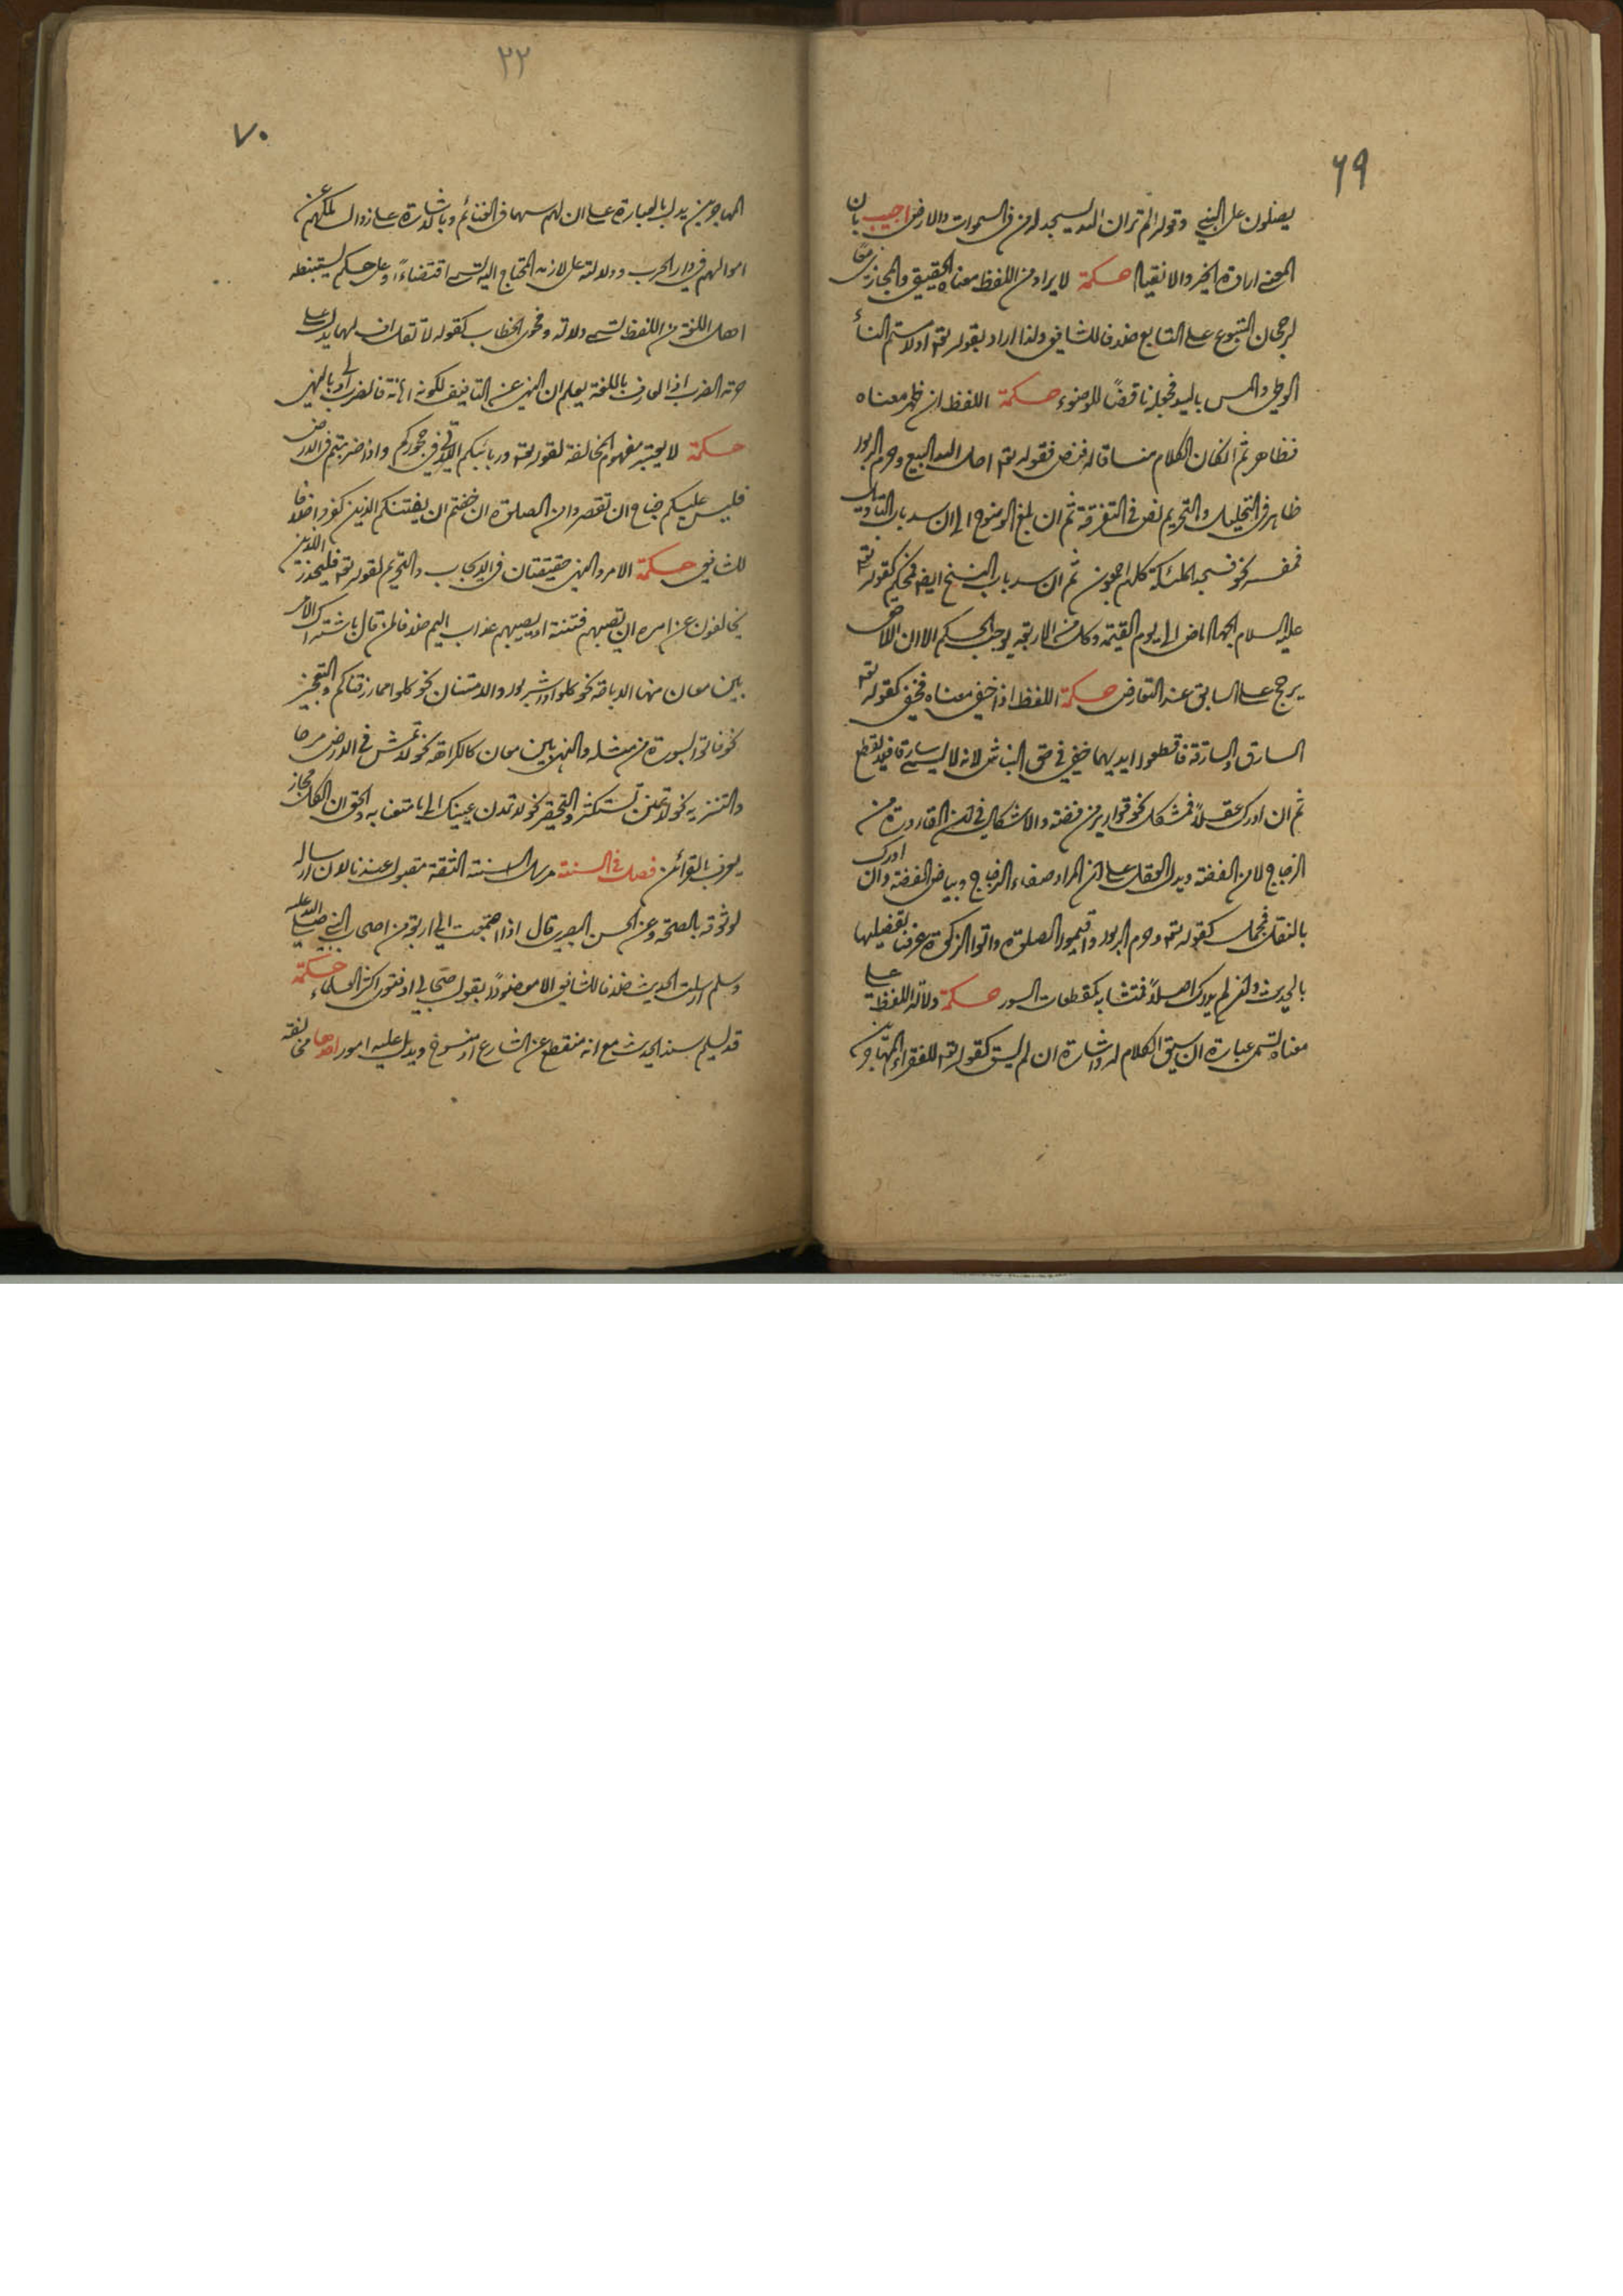 ٦٩
يصلون على النبي وقوله الم تر ان الله يسجد له من في السموات والارض اجيب بان
المعنى ارادة الخير والانقياد حكمة لا يراد من اللفظ معناه الحقيقي والمجازي معًا
لرجحان المتبوع على التابع خلافا للشافعي ولذا اراد بقوله تعه او لامستم النساء
الوطي والمس باليد فجعله ناقضًا للوضوء حكمة اللفظ ان ظهر معناه
فظاهر ثم ان كان الكلام منساقا له فنص فقوله تعه احل الله البيع وحرم الربوا
ظاهر في التحليل والتحريم نص في التفرقة ثم ان بلغ الوضوح الى ان سد باب التاويل
فمفسر نحو فسجد الملئكة كلهم اجمعون ثم ان سد باب النسخ ايضا فمحكم كقوله
عليه السلام الجهاد ماض الى يوم القيمة وكل من الاربعة يوجب الحكم الا ان اللاحق
يرجح على السابق عند التعارض حكمة اللفظ اذا خفي معناه فخفي كقوله تعه
السارق والسارقة فاقطعوا ايديهما خفي في حق النباش لانه لا يسمى سارقا فلا يقطع
ثم ان ادرك عقلاً فمشكل نحو قوارير من فضة والاشكال في ان القارورة من
الزجاج لا من الفضة ويدل العقل على ان المراد صفاء الزجاج وبياض الفضة وان ادرك
بالنقل فمجمل كقوله تعه وحرم الربوا واقيموا الصلوة واتوا الزكوة عرفنا تفصيلها
بالحديث وان لم يدرك اصلاً فمتشابه كمقطعات السور حكمة دلالة اللفظ على
معناه تسمى عبارة ان سيق الكلام له واشارة ان لم يسق كقوله تعه للفقراء المهاجرين
٢٢
٧٠
المهاجرين يدل بالعبارة على ان لهم سهما في الغنائم وبالاشارة على زوال ملكهم عن
اموالهم في دار الحرب ودلالته على لازمه المحتاج اليه تسمى اقتضاءً وعلى حكم يستنبطه
اهل اللغة من اللفظ تسمى دلالة وفحوى الخطاب كقوله لا تقل اف لهما يدل على
حرمة الضرب اذ العارف باللغة يعلم ان النهي عن التافيف لكونه اهانة فالضرب اولى بالنهي
حكمة لا يعتبر مفهوم المخالفة لقوله تعه وربائبكم اللاتي في حجوركم واذا ضربتم في الارض
فليس عليكم جناح ان تقصروا من الصلوة ان خفتم ان يفتنكم الذين كفروا خلافا
للشافعي حكمة الامر والنهي حقيقتان في الايجاب والتحريم لقوله تعه فليحذر الذين
يخالفون عن امره ان تصيبهم فتنة او يصيبهم عذاب اليم خلافا لمن قال باشتراك الامر
بين معان منها الاباحة نحو كلوا واشربوا والامتنان نحو كلوا مما رزقناكم والتعجيز
نحو فاتوا بسورة من مثله والنهي بين معان كالكراهة نحو لا تمش في الارض مرحا
والتنزيه نحو لا تمنن تستكثر والتحقير نحو لا تمدن عينيك الى ما متعنا به والحق ان الكل مجاز
يعرف بالقرائن فصل في السنة مرسل السنة الثقة مقبول عندنا لان ارساله
لوثوقه بالصحة وعن الحسن البصري قال اذا اجتمعت الي اربعة من اصحاب النبي صلى الله عليه
وسلم ارسلت الحديث خلافا للشافعي الا معضودًا بقول صحابي او فتوى اكثر العلماء حكمة
قد يسلم سند الحديث مع انه منقطع عن الشارع او منسوخ ويدل عليه امور احدها مخالفة